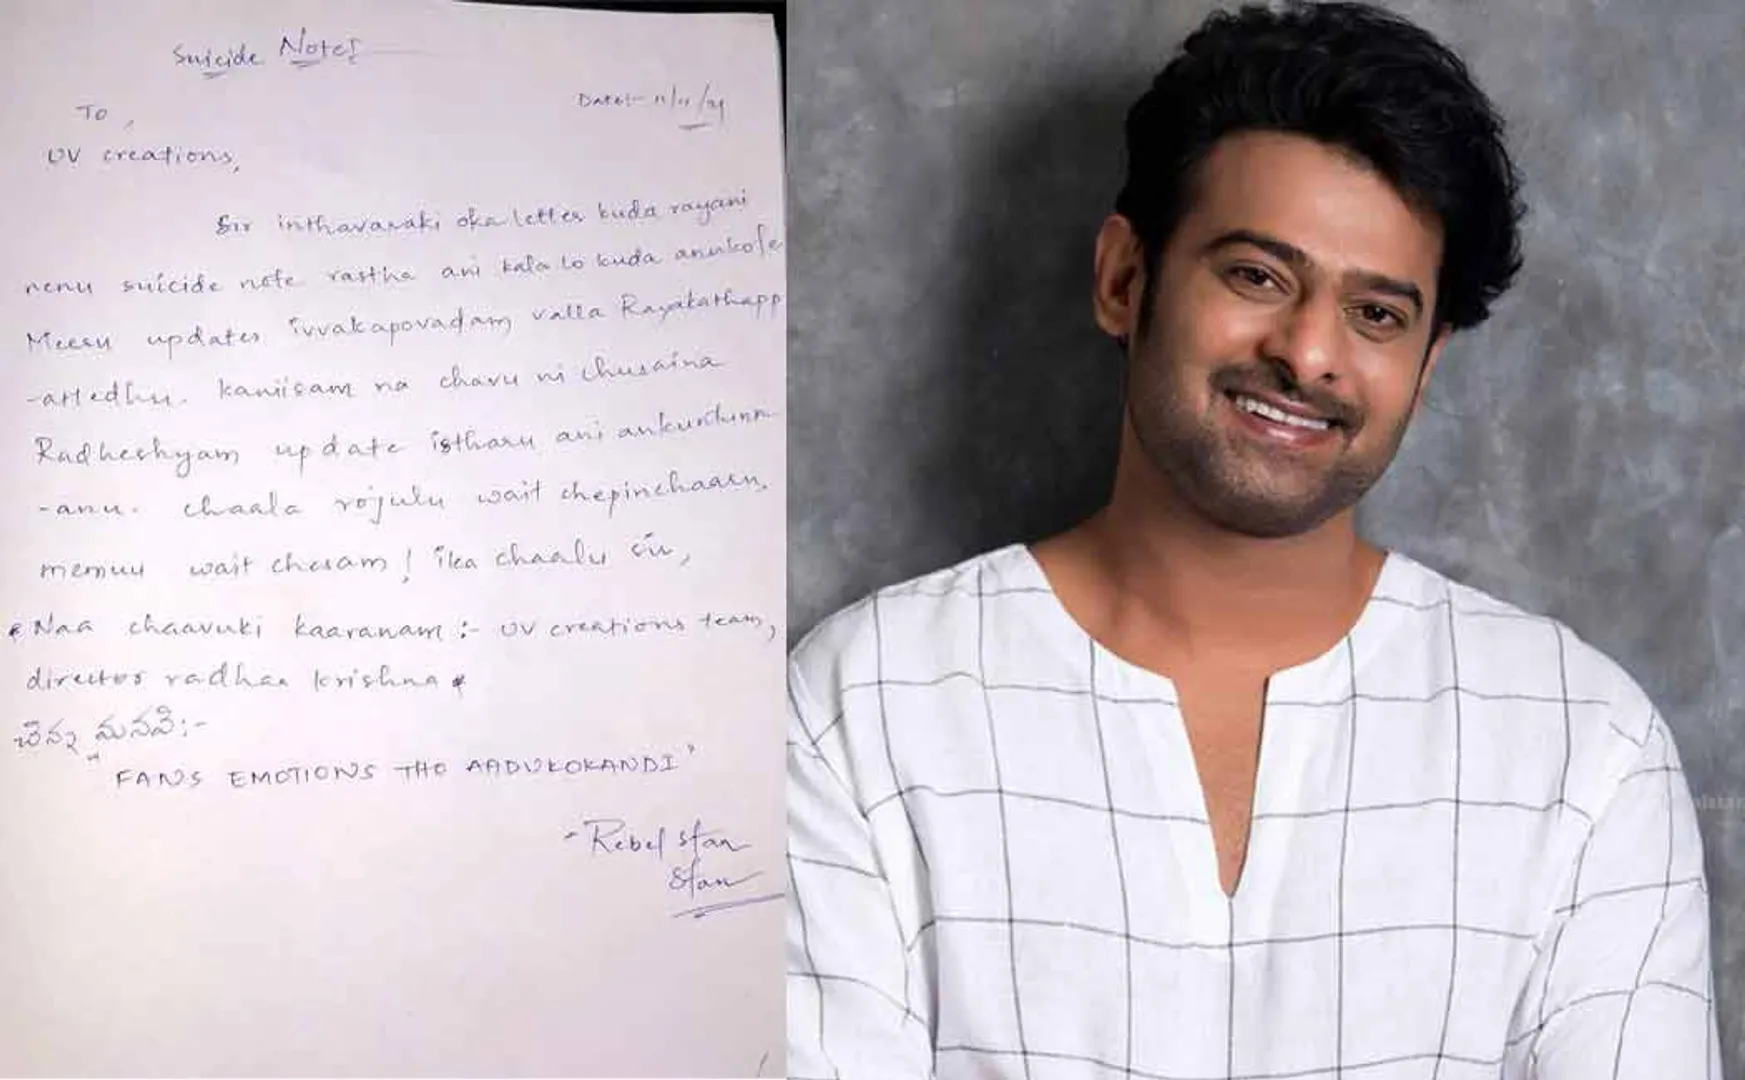 Suicide Note!
Date:- 11/11/21
To,
UV creations,
Sir inthavaraki oka letter kuda rayani
nenu suicide note rastha ani kala lo kuda anukole
Meeru updates ivvakapovadam valla Rayakathapp
-attedhu. kaniisam na chavu ni chusaina
Radheshyam update istharu ani ankuntunn
-anu. chaala rojulu wait chepinchaaru.
memuu wait chesam! ika chaalu sir,
* Naa chaavuki kaaranam :- UV creations team,
director radhaa krishna *
చిన్న మనవి:-
"FANS EMOTIONS THO AADUKOKANDI"
- Rebel stan
Stan